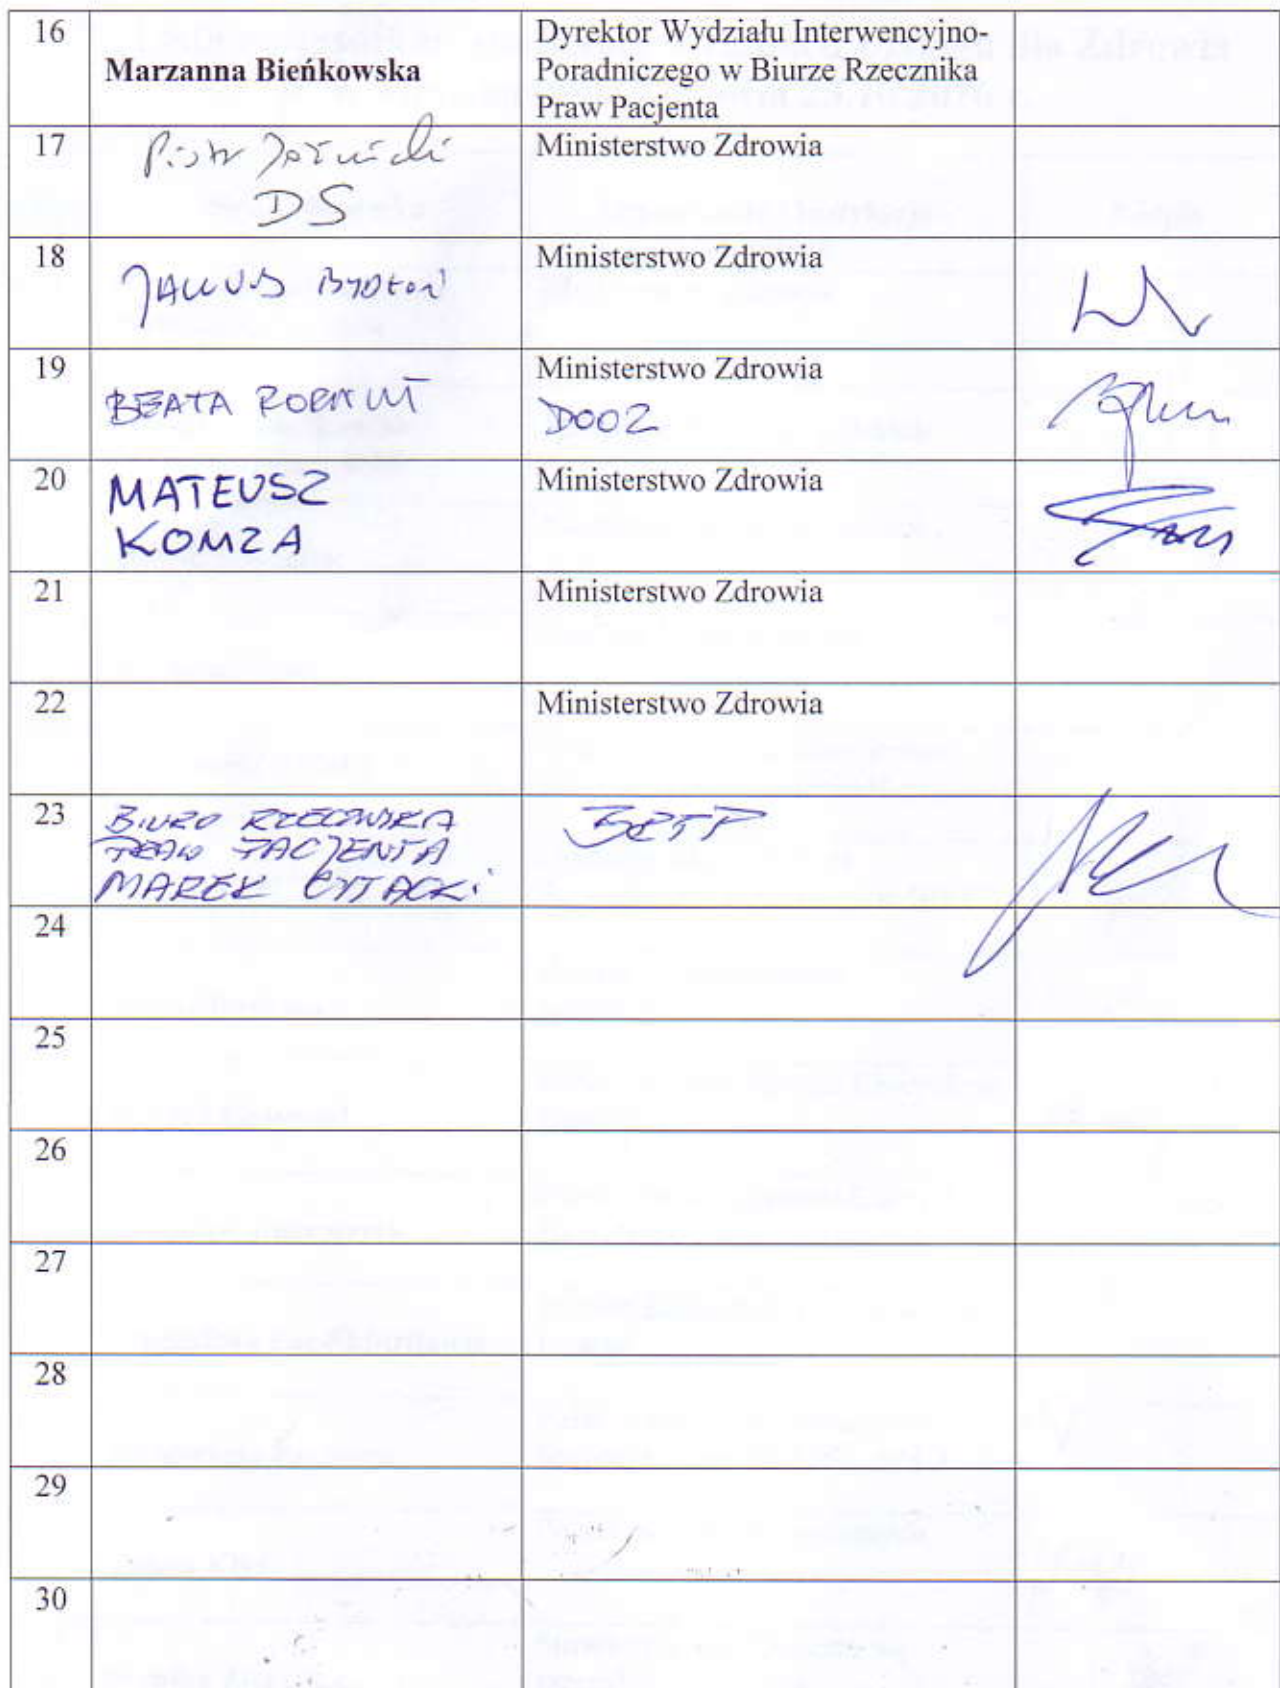 16
Marzanna Bieńkowska
Dyrektor Wydziału Interwencyjno-
Poradniczego w Biurze Rzecznika
Praw Pacjenta
17
Piotr
DS
Ministerstwo Zdrowia
18
Ministerstwo Zdrowia
19
BEATA
Ministerstwo Zdrowia
DOOZ
20
MATEUSZ
KOMZA
Ministerstwo Zdrowia
21
Ministerstwo Zdrowia
22
Ministerstwo Zdrowia
23
BIURO RZECZNIKA
PRAW PACJENTA
MAREK
24
25
26
27
28
29
30